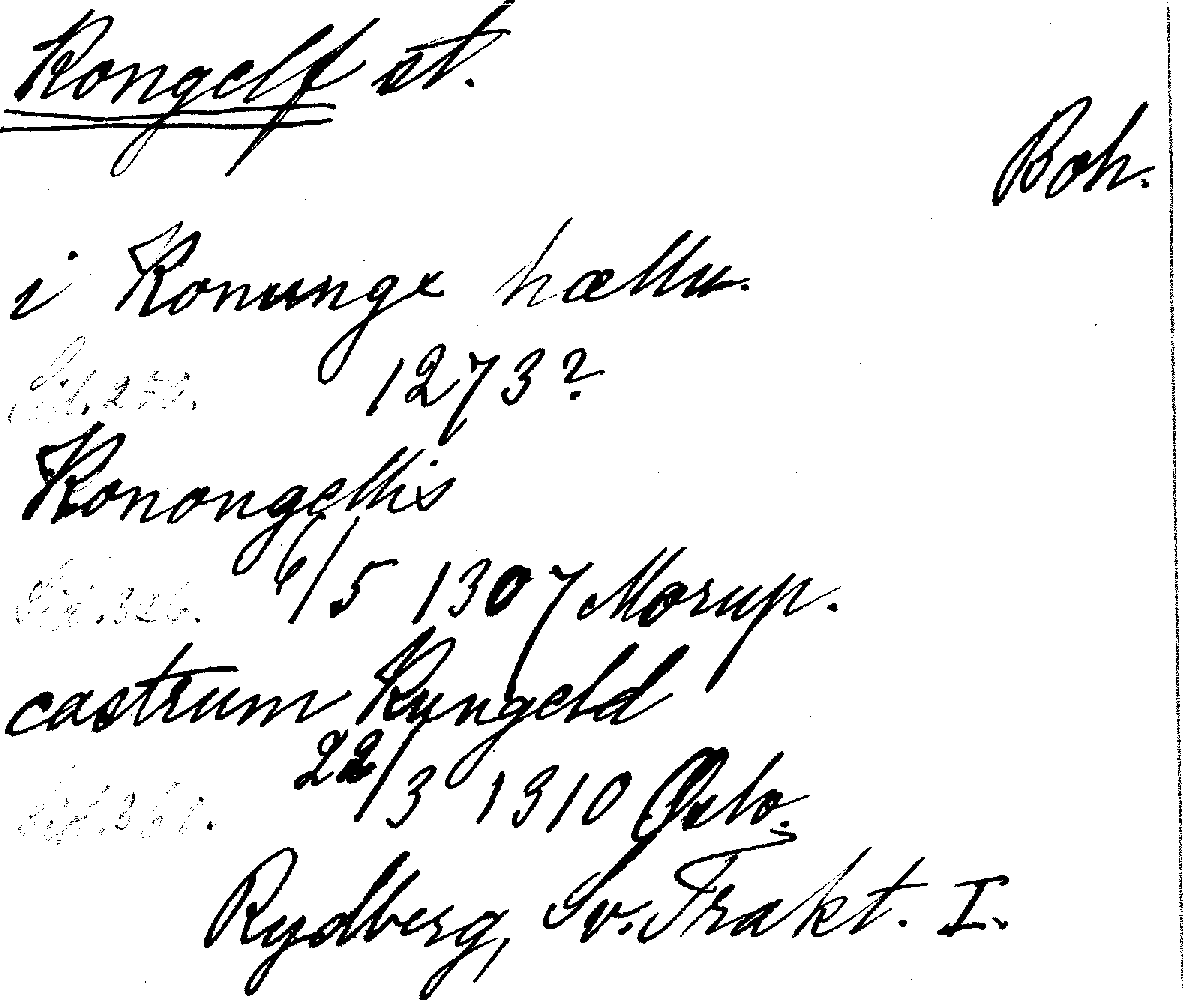 Kongelf st.
Boh.
i Konunge hællu.
Sid. 250. 1273?
Konongellis
Sid. 326. 6/5 1307 Morup.
castrum Kungeld
Sid. 361. 22/3 1310 Oslo.
Rydberg, Sv. Trakt. I.